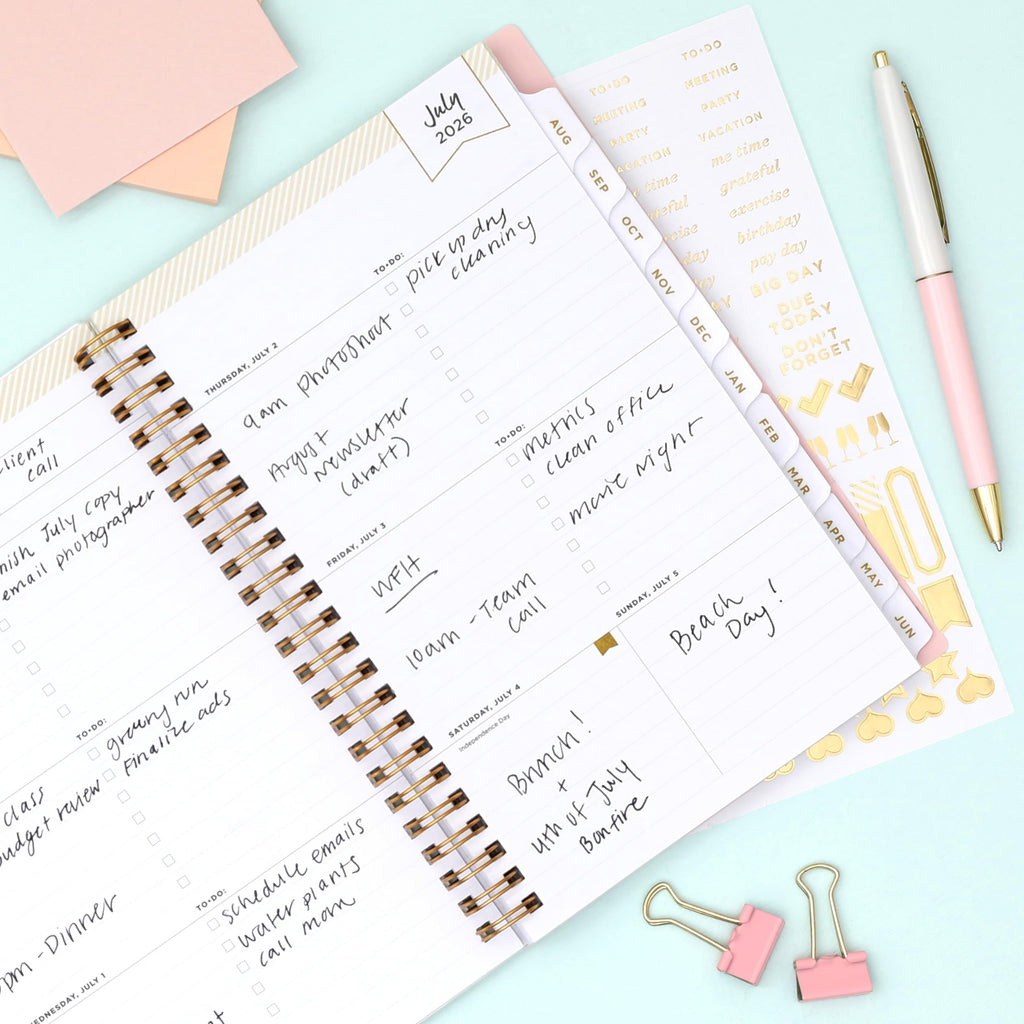 July
2026
TO•DO:
pick up dry
cleaning
THURSDAY, JULY 2
9am photoshoot
August
Newsletter
(draft)
TO•DO:
metrics
clean office
movie night
FRIDAY, JULY 3
WFH
10am - Team
call
SATURDAY, JULY 4
Independence Day
Brunch!
+
4th of July
Bonfire
SUNDAY, JULY 5
Beach
Day!
call
email photographer
July copy
TO•DO:
grocery run
Finalize ads
class
budget review
- Dinner
TO•DO:
schedule emails
water plants
call mom
JULY 1
AUG
SEP
OCT
NOV
DEC
JAN
FEB
MAR
APR
MAY
JUN
TO•DO
MEETING
PARTY
TO•DO
MEETING
PARTY
VACATION
me time
grateful
exercise
birthday
pay day
BIG DAY
DUE
TODAY
DON'T
FORGET